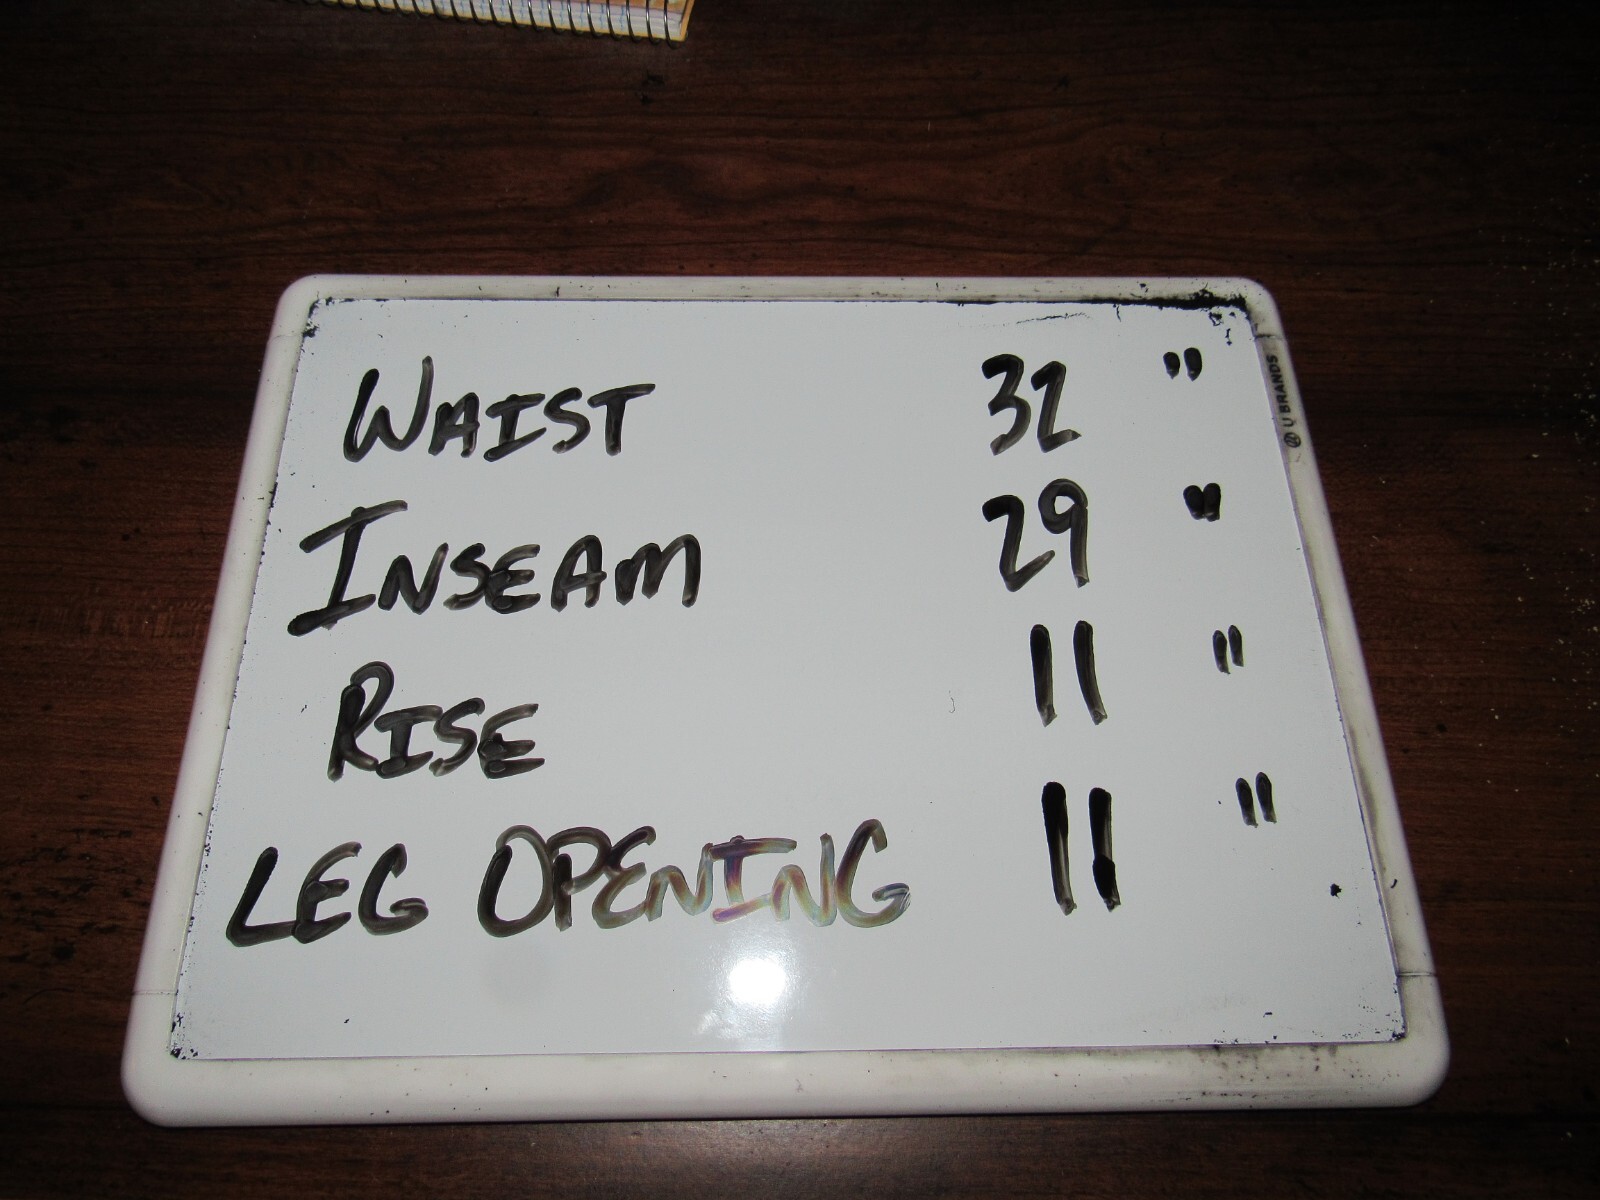 WAIST 32 "
INSEAM 29 "
RISE 11 "
LEG OPENING 11 "
U BRANDS